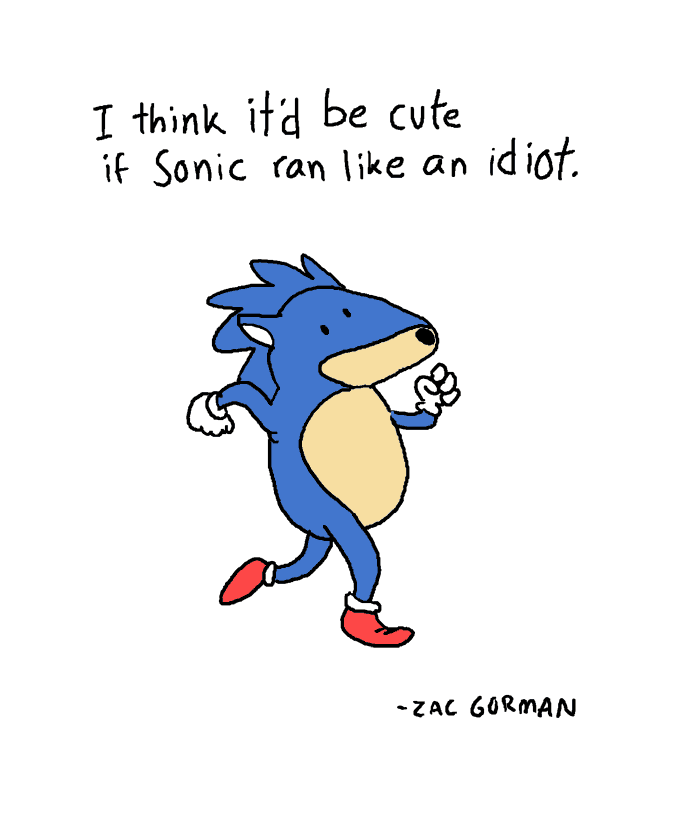 I think it'd be cute
if Sonic ran like an idiot.
-ZAC GORMAN